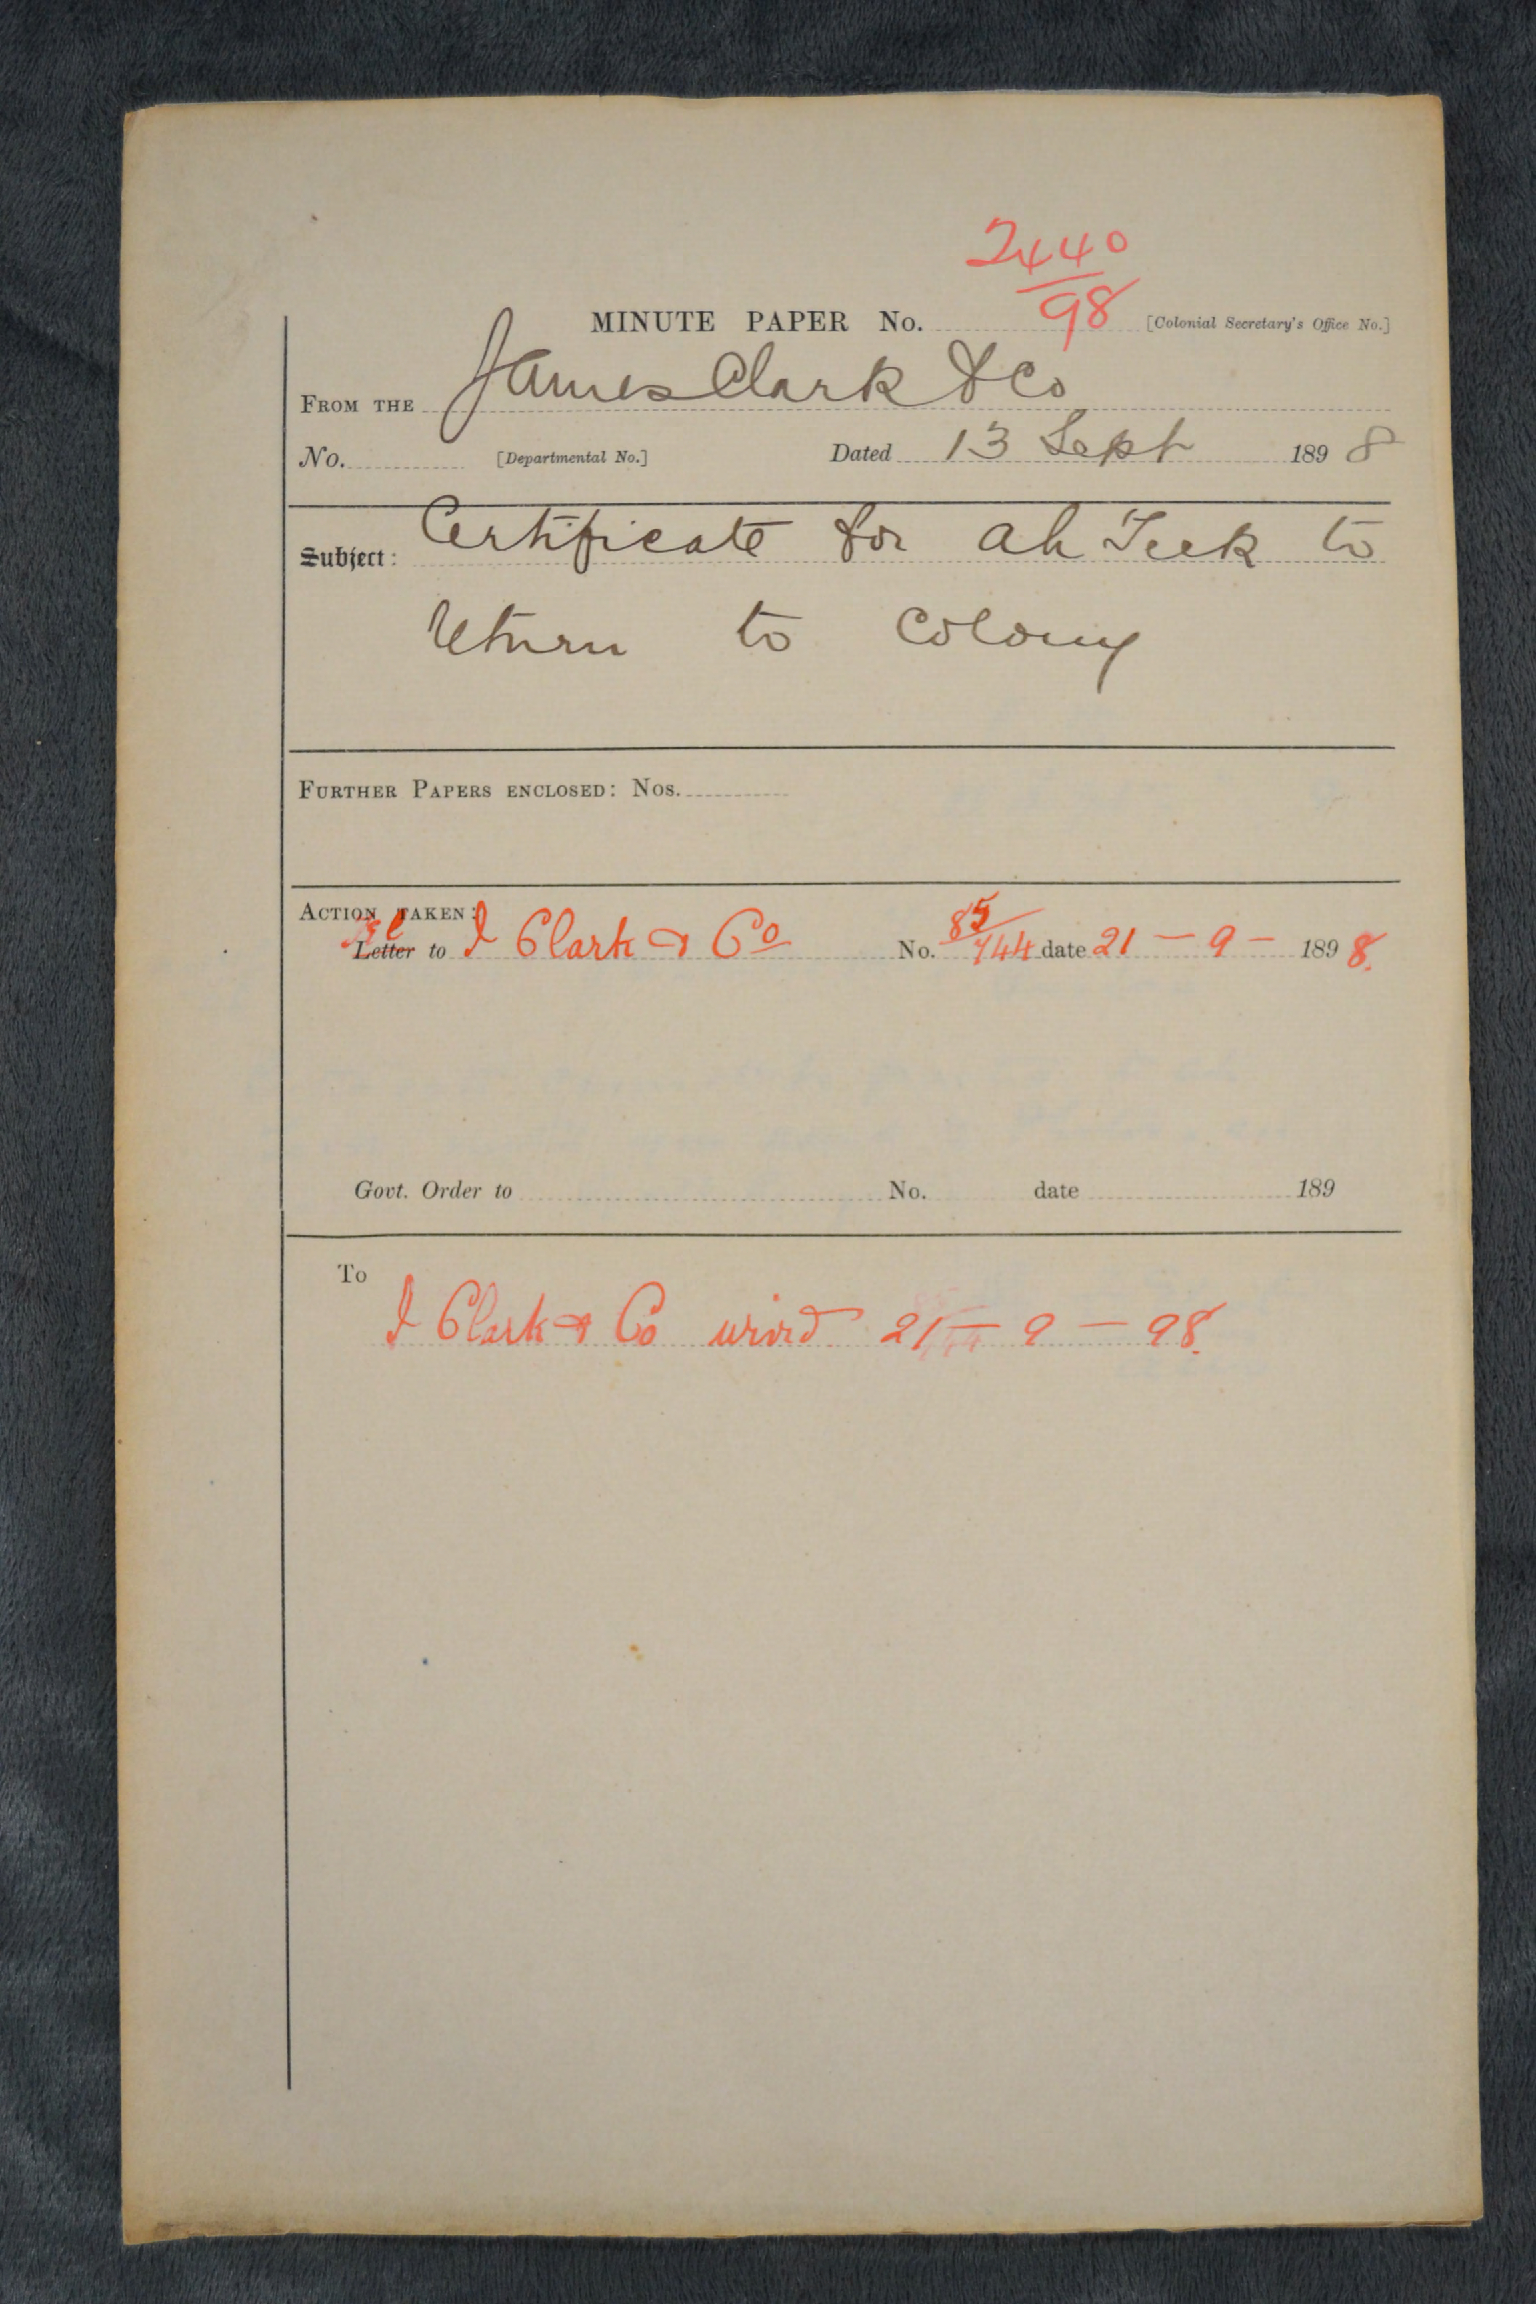 2440
98
MINUTE PAPER No. [Colonial Secretary's Office No.]
FROM THE James Clark & Co
No. [Departmental No.] Dated 13 Sept 1898
Subject: Certificate for Ah Teek to
return to Colony
FURTHER PAPERS ENCLOSED: Nos.
ACTION TAKEN:
Letter to J Clark & Co No. 85/744 date 21 - 9 - 1898.
Govt. Order to No. date 189
To
J Clark & Co wired 21 - 9 - 98.